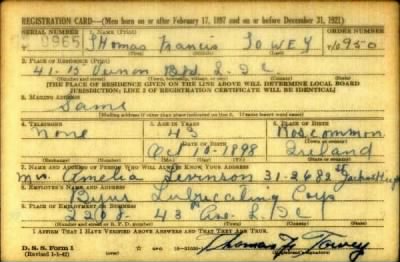 REGISTRATION CARD—(Men born on or after February 17, 1897 and on or before December 31, 1921)
SERIAL NUMBER 1. NAME (Print) ORDER NUMBER
0965 Thomas Francis Towey 10950
(First) (Middle) (Last)
2. PLACE OF RESIDENCE (Print)
41-15 Vernon Bld L.I.C
(Number and street) (Town, township, village, or city) (County) (State)
[THE PLACE OF RESIDENCE GIVEN ON THE LINE ABOVE WILL DETERMINE LOCAL BOARD
JURISDICTION; LINE 2 OF REGISTRATION CERTIFICATE WILL BE IDENTICAL]
3. MAILING ADDRESS
Same
[Mailing address if other than place indicated on line 2. If same insert word same]
4. TELEPHONE 5. AGE IN YEARS 6. PLACE OF BIRTH
None 43 Roscommon
DATE OF BIRTH (Town or county)
Oct 10 1898 Ireland
(Exchange) (Number) (Mo.) (Day) (Yr.) (State or country)
7. NAME AND ADDRESS OF PERSON WHO WILL ALWAYS KNOW YOUR ADDRESS
Mrs Amelia 31-26 82 St
8. EMPLOYER'S NAME AND ADDRESS
Lubricating Corp
9. PLACE OF EMPLOYMENT OR BUSINESS
43 Ave. L.I.C
(Number and street or R. F. D. number) (Town) (County) (State)
I AFFIRM THAT I HAVE VERIFIED ABOVE ANSWERS AND THAT THEY ARE TRUE.
D. S. S. Form 1
(Revised 1-1-42) (over)
Thomas F Towey